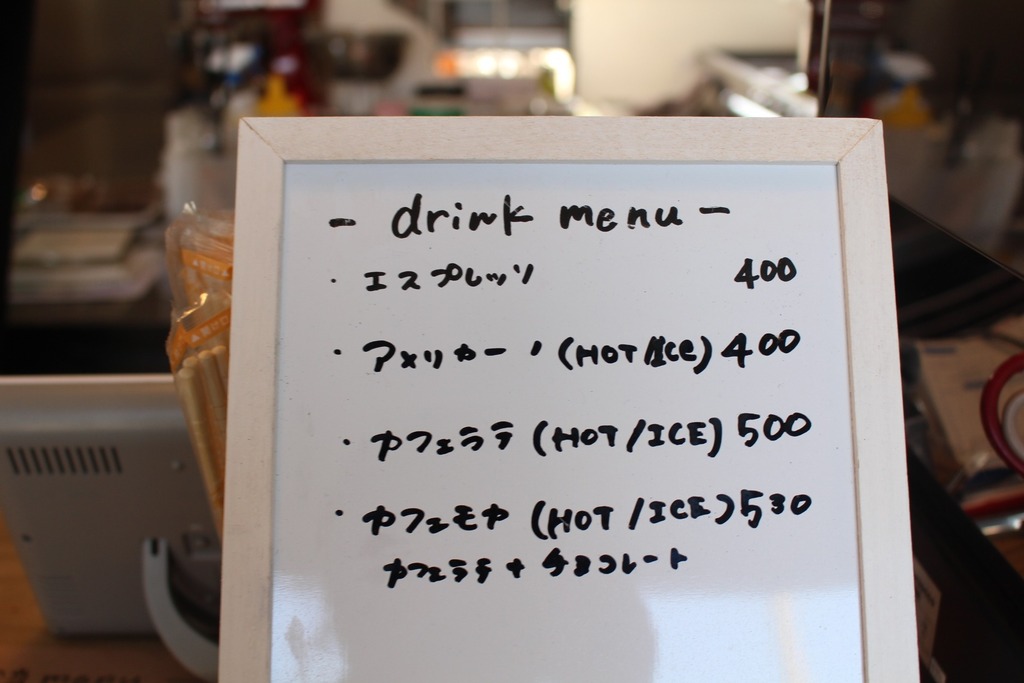 - drink menu -
・エスプレッソ 400
・アメリカーノ (HOT/ICE) 400
・カフェララ (HOT/ICE) 500
・カフェモカ (HOT/ICE) 530
カフェララ + チョコレート